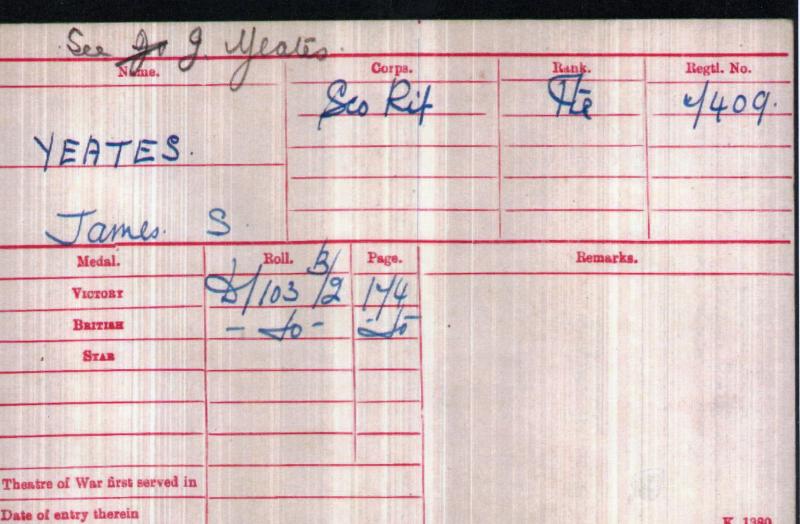 See J. Yeates.
Name. Corps. Rank. Regtl. No.
Sco Rif Pte /409.
YEATES.
James. S
Medal. Roll. Page. Remarks.
VICTORY /103 B/2 174
BRITISH - do - - do -
STAR
Theatre of War first served in
Date of entry therein
K. 1380